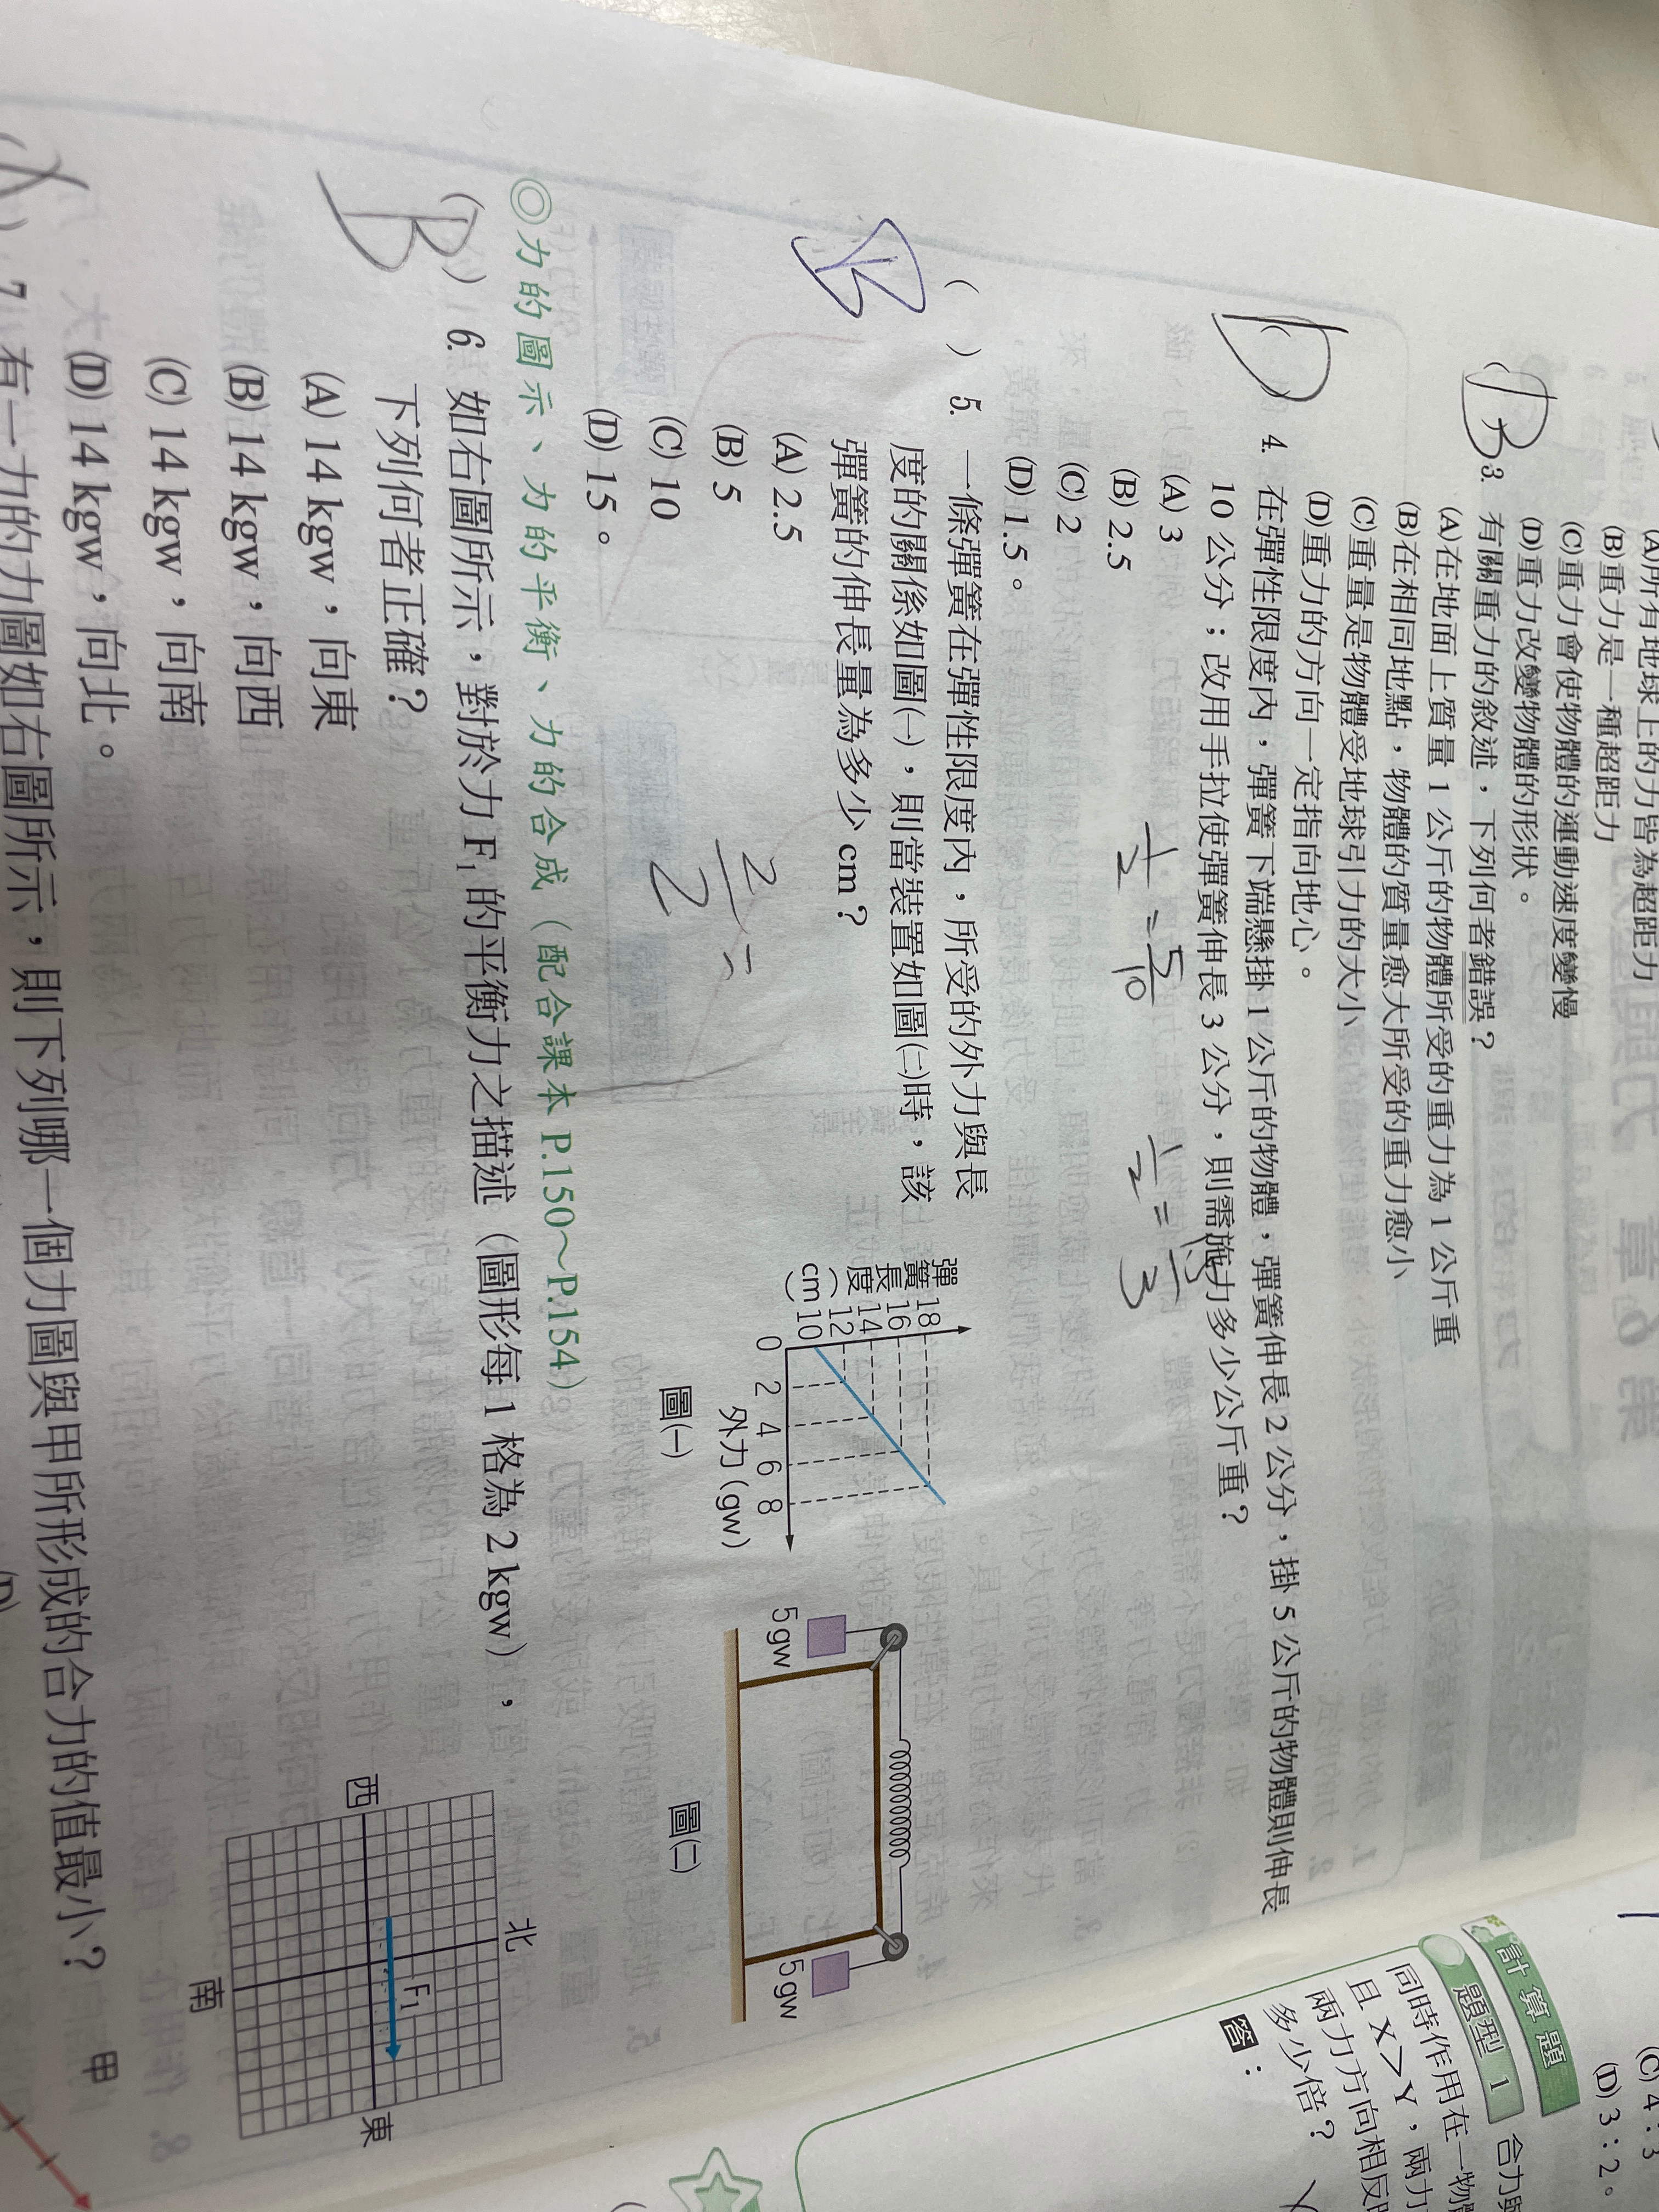 (A)所有地球上的力皆為超距力
(B)重力是一種超距力
(C)重力會使物體的運動速度變慢
(D)重力改變物體的形狀。
( B ) 3. 有關重力的敘述，下列何者錯誤？
(A)在地面上質量 1 公斤的物體所受的重力為 1 公斤重
(B)在相同地點，物體的質量愈大所受的重力愈小
(C)重量是物體受地球引力的大小
(D)重力的方向一定指向地心。
D 4. 在彈性限度內，彈簧下端懸掛 1 公斤的物體，彈簧伸長 2 公分，掛 5 公斤的物體則伸長
10 公分；改用手拉使彈簧伸長 3 公分，則需施力多少公斤重？
(A) 3
(B) 2.5
(C) 2
(D) 1.5。
1/2 = 5/10
1/2 = 1.5/3
( ) 5. 一條彈簧在彈性限度內，所受的外力與長
度的關係如圖(一)，則當裝置如圖(二)時，該
彈簧的伸長量為多少 cm？
(A) 2.5
(B) 5
(C) 10
(D) 15。
2/2 =
彈簧長度(cm)
18
16
14
12
10
0 2 4 6 8
外力(gw)
圖(一)
5 gw
5 gw
圖(二)
◎力的圖示、力的平衡、力的合成（配合課本 P.150～P.154）
( B ) 6. 如右圖所示，對於力 F₁ 的平衡力之描述（圖形每 1 格為 2 kgw），
下列何者正確？
(A) 14 kgw，向東
(B) 14 kgw，向西
(C) 14 kgw，向南
(D) 14 kgw，向北。
北
西
F₁
東
南
7. 有一力的力圖如右圖所示，則下列哪一個力圖與甲所形成的合力的值最小？
甲
(C) 4：3
(D) 3：2。
計算題
題型 1
合力
同時作用在一物
且 X＞Y，兩力
兩力方向相反
多少倍？
答：